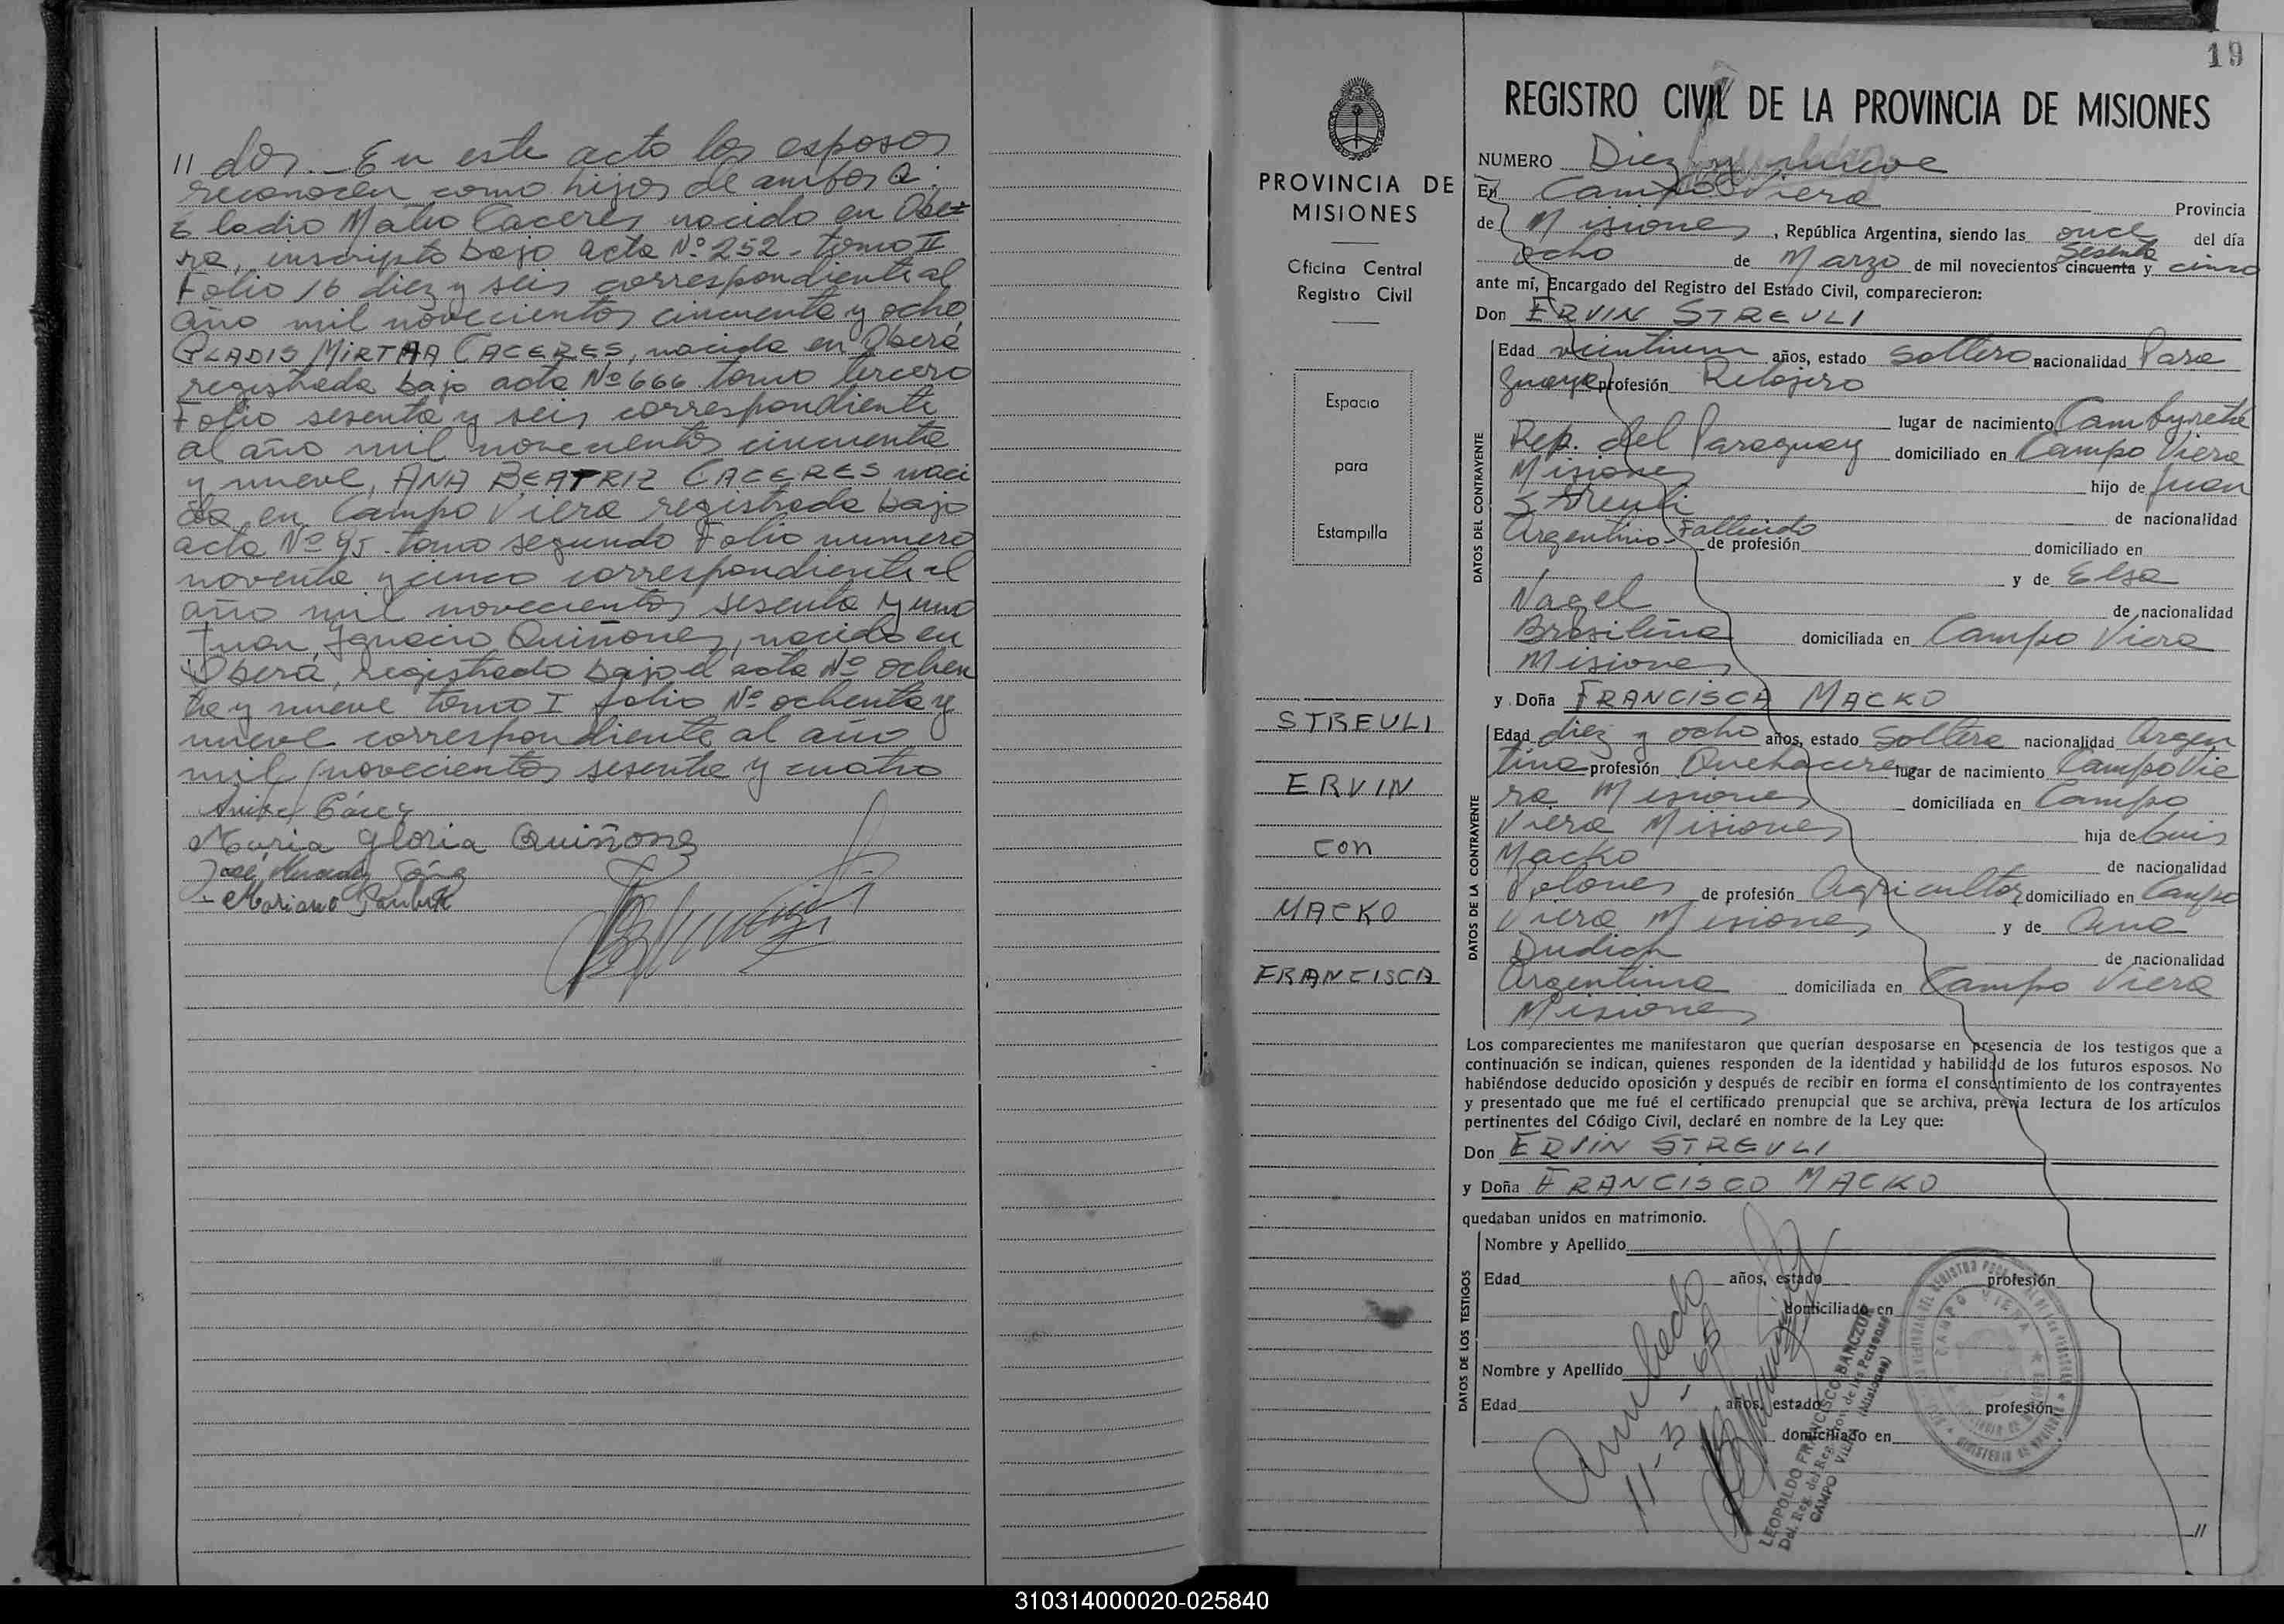 // dos.- En este acto los esposos
reconocen como hijos de ambos a:
Eladio Mario Caceres nacido en Obe=
ra, inscripto bajo acta Nº 252 - tomo II
Folio 16 diez y seis correspondiente al
año mil novecientos cincuenta y ocho,
GLADIS MIRTHA CACERES, nacida en Oberá
registrada bajo acta Nº 666 tomo tercero
Folio sesenta y seis correspondiente
al año mil novecientos cincuenta
y nueve, ANA BEATRIZ CACERES naci
da en Campo Viera registrada bajo
acta Nº 95 tomo segundo Folio numero
noventa y cinco correspondiente al
año mil novecientos sesenta y uno
Juan Ignacio Quiñones, nacido en
Oberá, registrado bajo el acta Nº ochen
ta y nueve tomo I folio Nº ochenta y
nueve correspondiente al año
mil novecientos sesenta y cuatro
Maria Gloria Quiñones
José
Mariano
19
PROVINCIA DE
MISIONES
Oficina Central
Registro Civil
Espacio
para
Estampilla
STREULI
ERVIN
CON
MACKO
FRANCISCA
REGISTRO CIVIL DE LA PROVINCIA DE MISIONES
NUMERO Diez y nueve
En Campo Viera Provincia
de Misiones, República Argentina, siendo las once del día
ocho de Marzo de mil novecientos cincuenta sesenta y cinco
ante mí, Encargado del Registro del Estado Civil, comparecieron:
Don ERVIN STREULI
DATOS DEL CONTRAYENTE
Edad veintiun años, estado Soltero nacionalidad Para
guaya profesión Relojero
lugar de nacimiento Cambyretá
Rep. del Paraguay domiciliado en Campo Viera
Misiones hijo de Juan
Streuli de nacionalidad
Argentino - Fallecido de profesión domiciliado en
y de Elsa
Nagel de nacionalidad
Brasileña domiciliada en Campo Viera
Misiones
y Doña FRANCISCA MACKO
DATOS DE LA CONTRAYENTE
Edad diez y ocho años, estado Soltera nacionalidad Argen
tina profesión Quehaceres lugar de nacimiento Campo Vie
ra Misiones domiciliada en Campo
Viera Misiones hija de Luis
Macko de nacionalidad
Polones de profesión Agricultor domiciliado en Campo
Viera Misiones y de Ana
Dudich de nacionalidad
Argentina domiciliada en Campo Viera
Misiones
Los comparecientes me manifestaron que querían desposarse en presencia de los testigos que a
continuación se indican, quienes responden de la identidad y habilidad de los futuros esposos. No
habiéndose deducido oposición y después de recibir en forma el consentimiento de los contrayentes
y presentado que me fué el certificado prenupcial que se archiva, previa lectura de los artículos
pertinentes del Código Civil, declaré en nombre de la Ley que:
Don ERVIN STREULI
y Doña FRANCISCO MACKO
quedaban unidos en matrimonio.
DATOS DE LOS TESTIGOS
Nombre y Apellido
Edad años, estado profesión
domiciliado en
Nombre y Apellido
Edad años, estado profesión
domiciliado en
Anulado
11-3-65
LEOPOLDO FRANCISCO BANCZUR
Del. Reg. del Reg. Prov. de las Personas
CAMPO VIERA (Misiones)
CAMPO VIERA
//
310314000020-025840